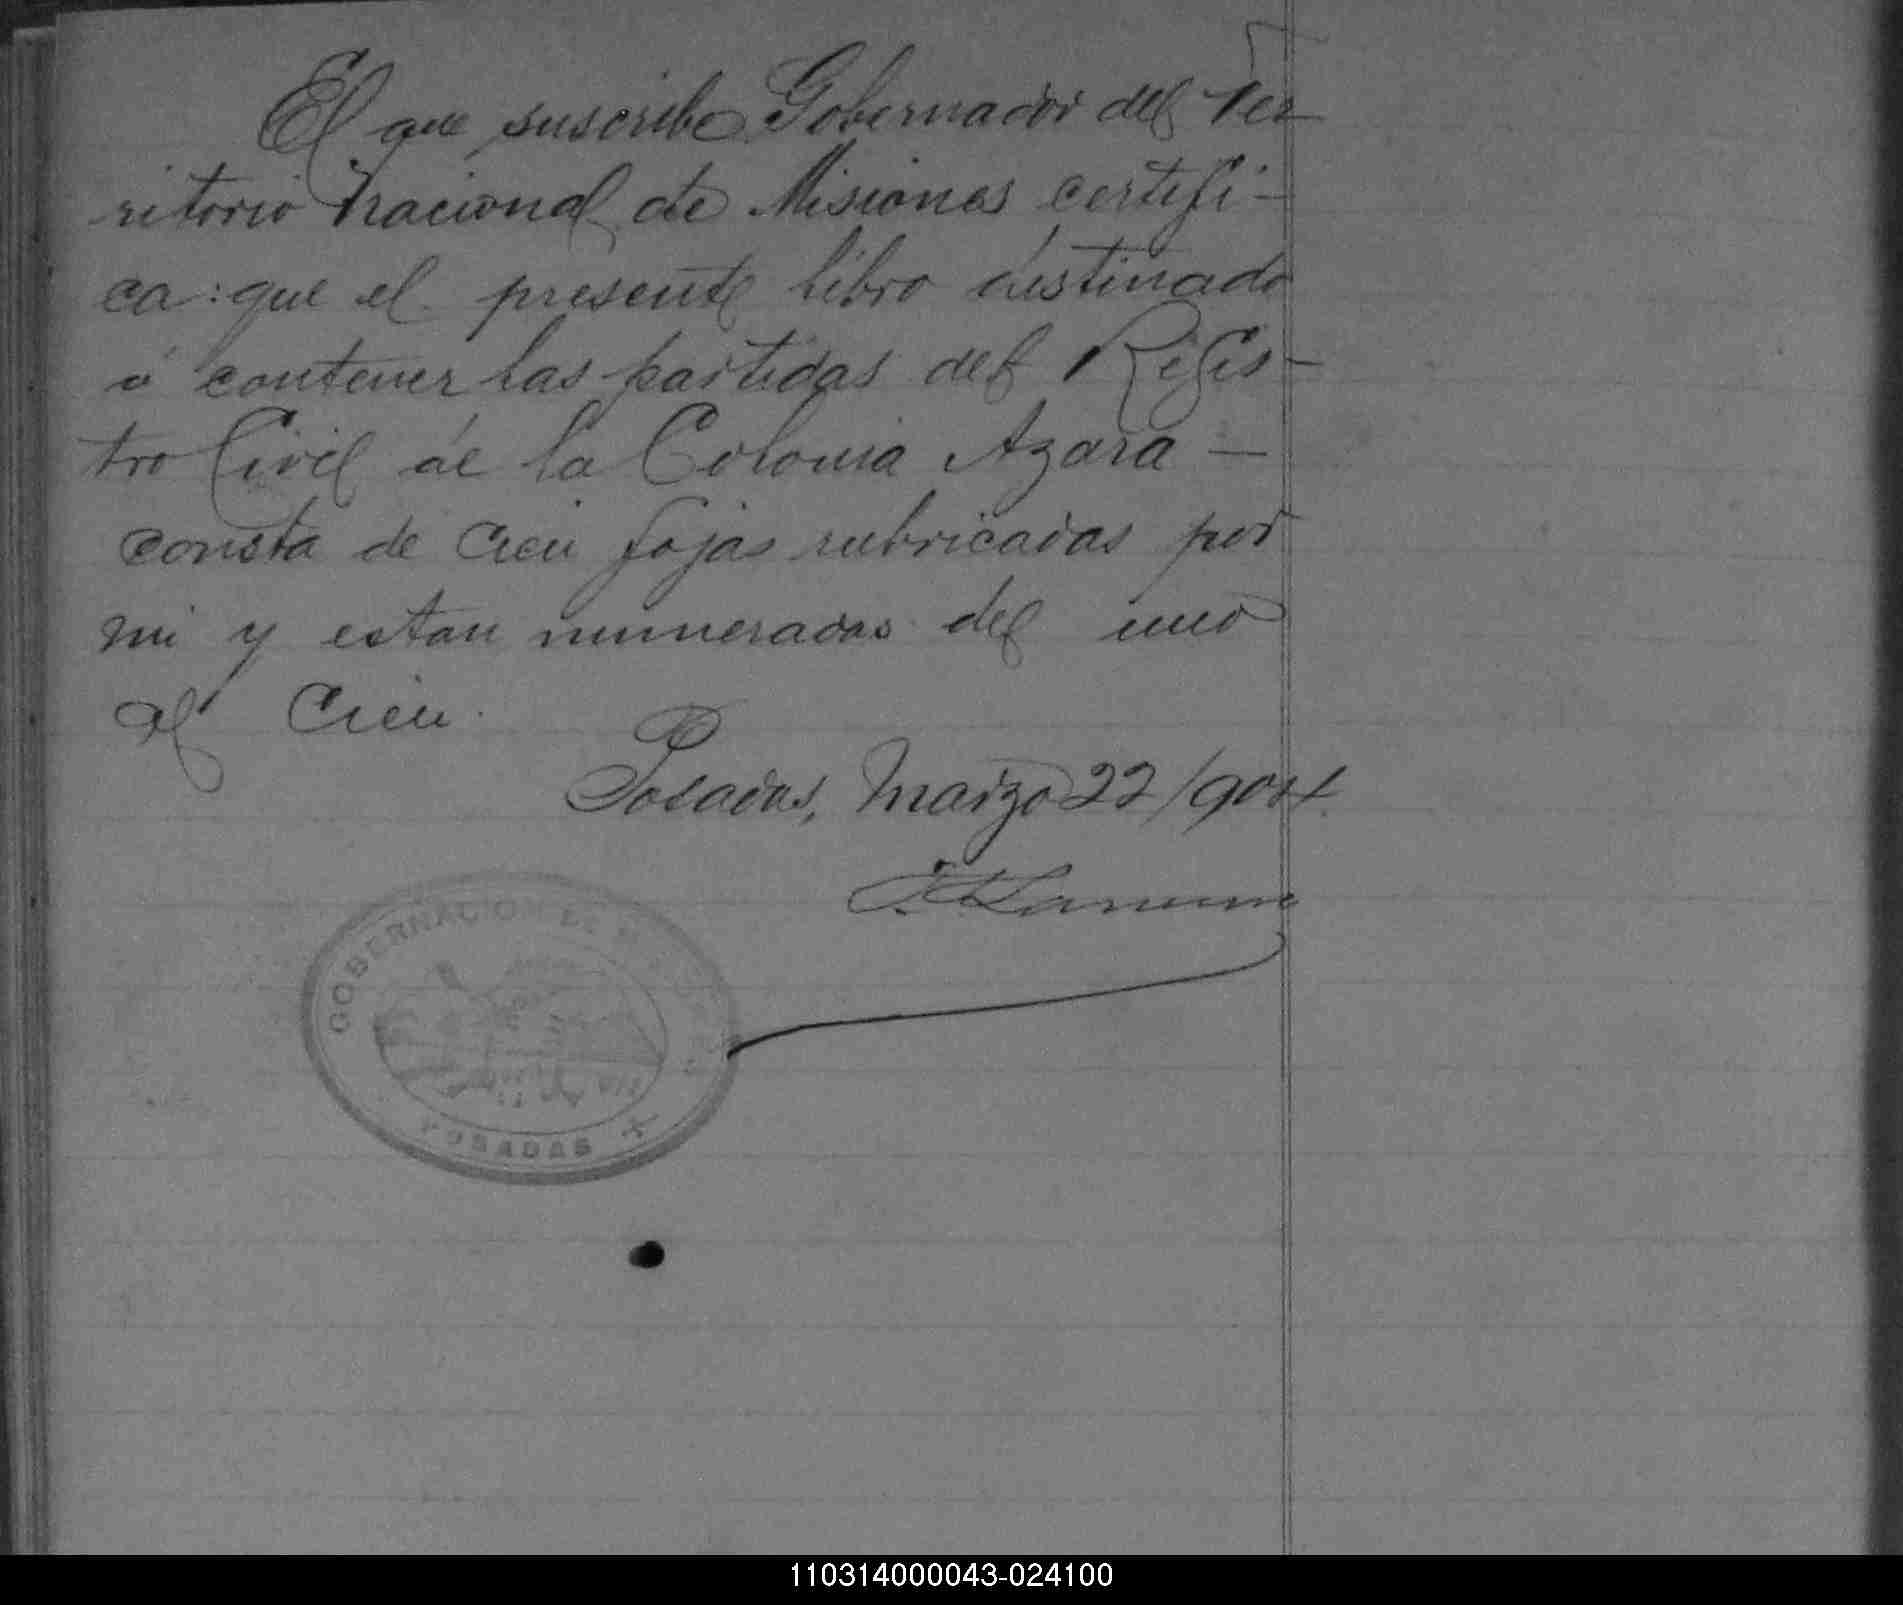 El que suscribe Gobernador del Ter
ritorio Nacional de Misiones certifi-
ca: que el presente libro destinado
á contener las partidas del Regis-
tro Civil de la Colonia Azara —
consta de cien fojas rubricadas por
mi y estan numeradas del uno
al cien.
Posadas, Marzo 22/904
J. J. Lanusse
GOBERNACION DE MISIONES
POSADAS
110314000043-024100